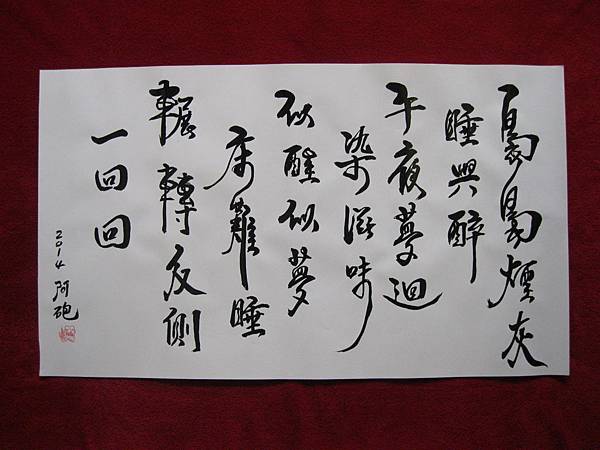 煙灰
睡與醉
午夜夢迴
染滋味
似醒似夢
床難睡
輾轉反側
一回回
2014 阿砲